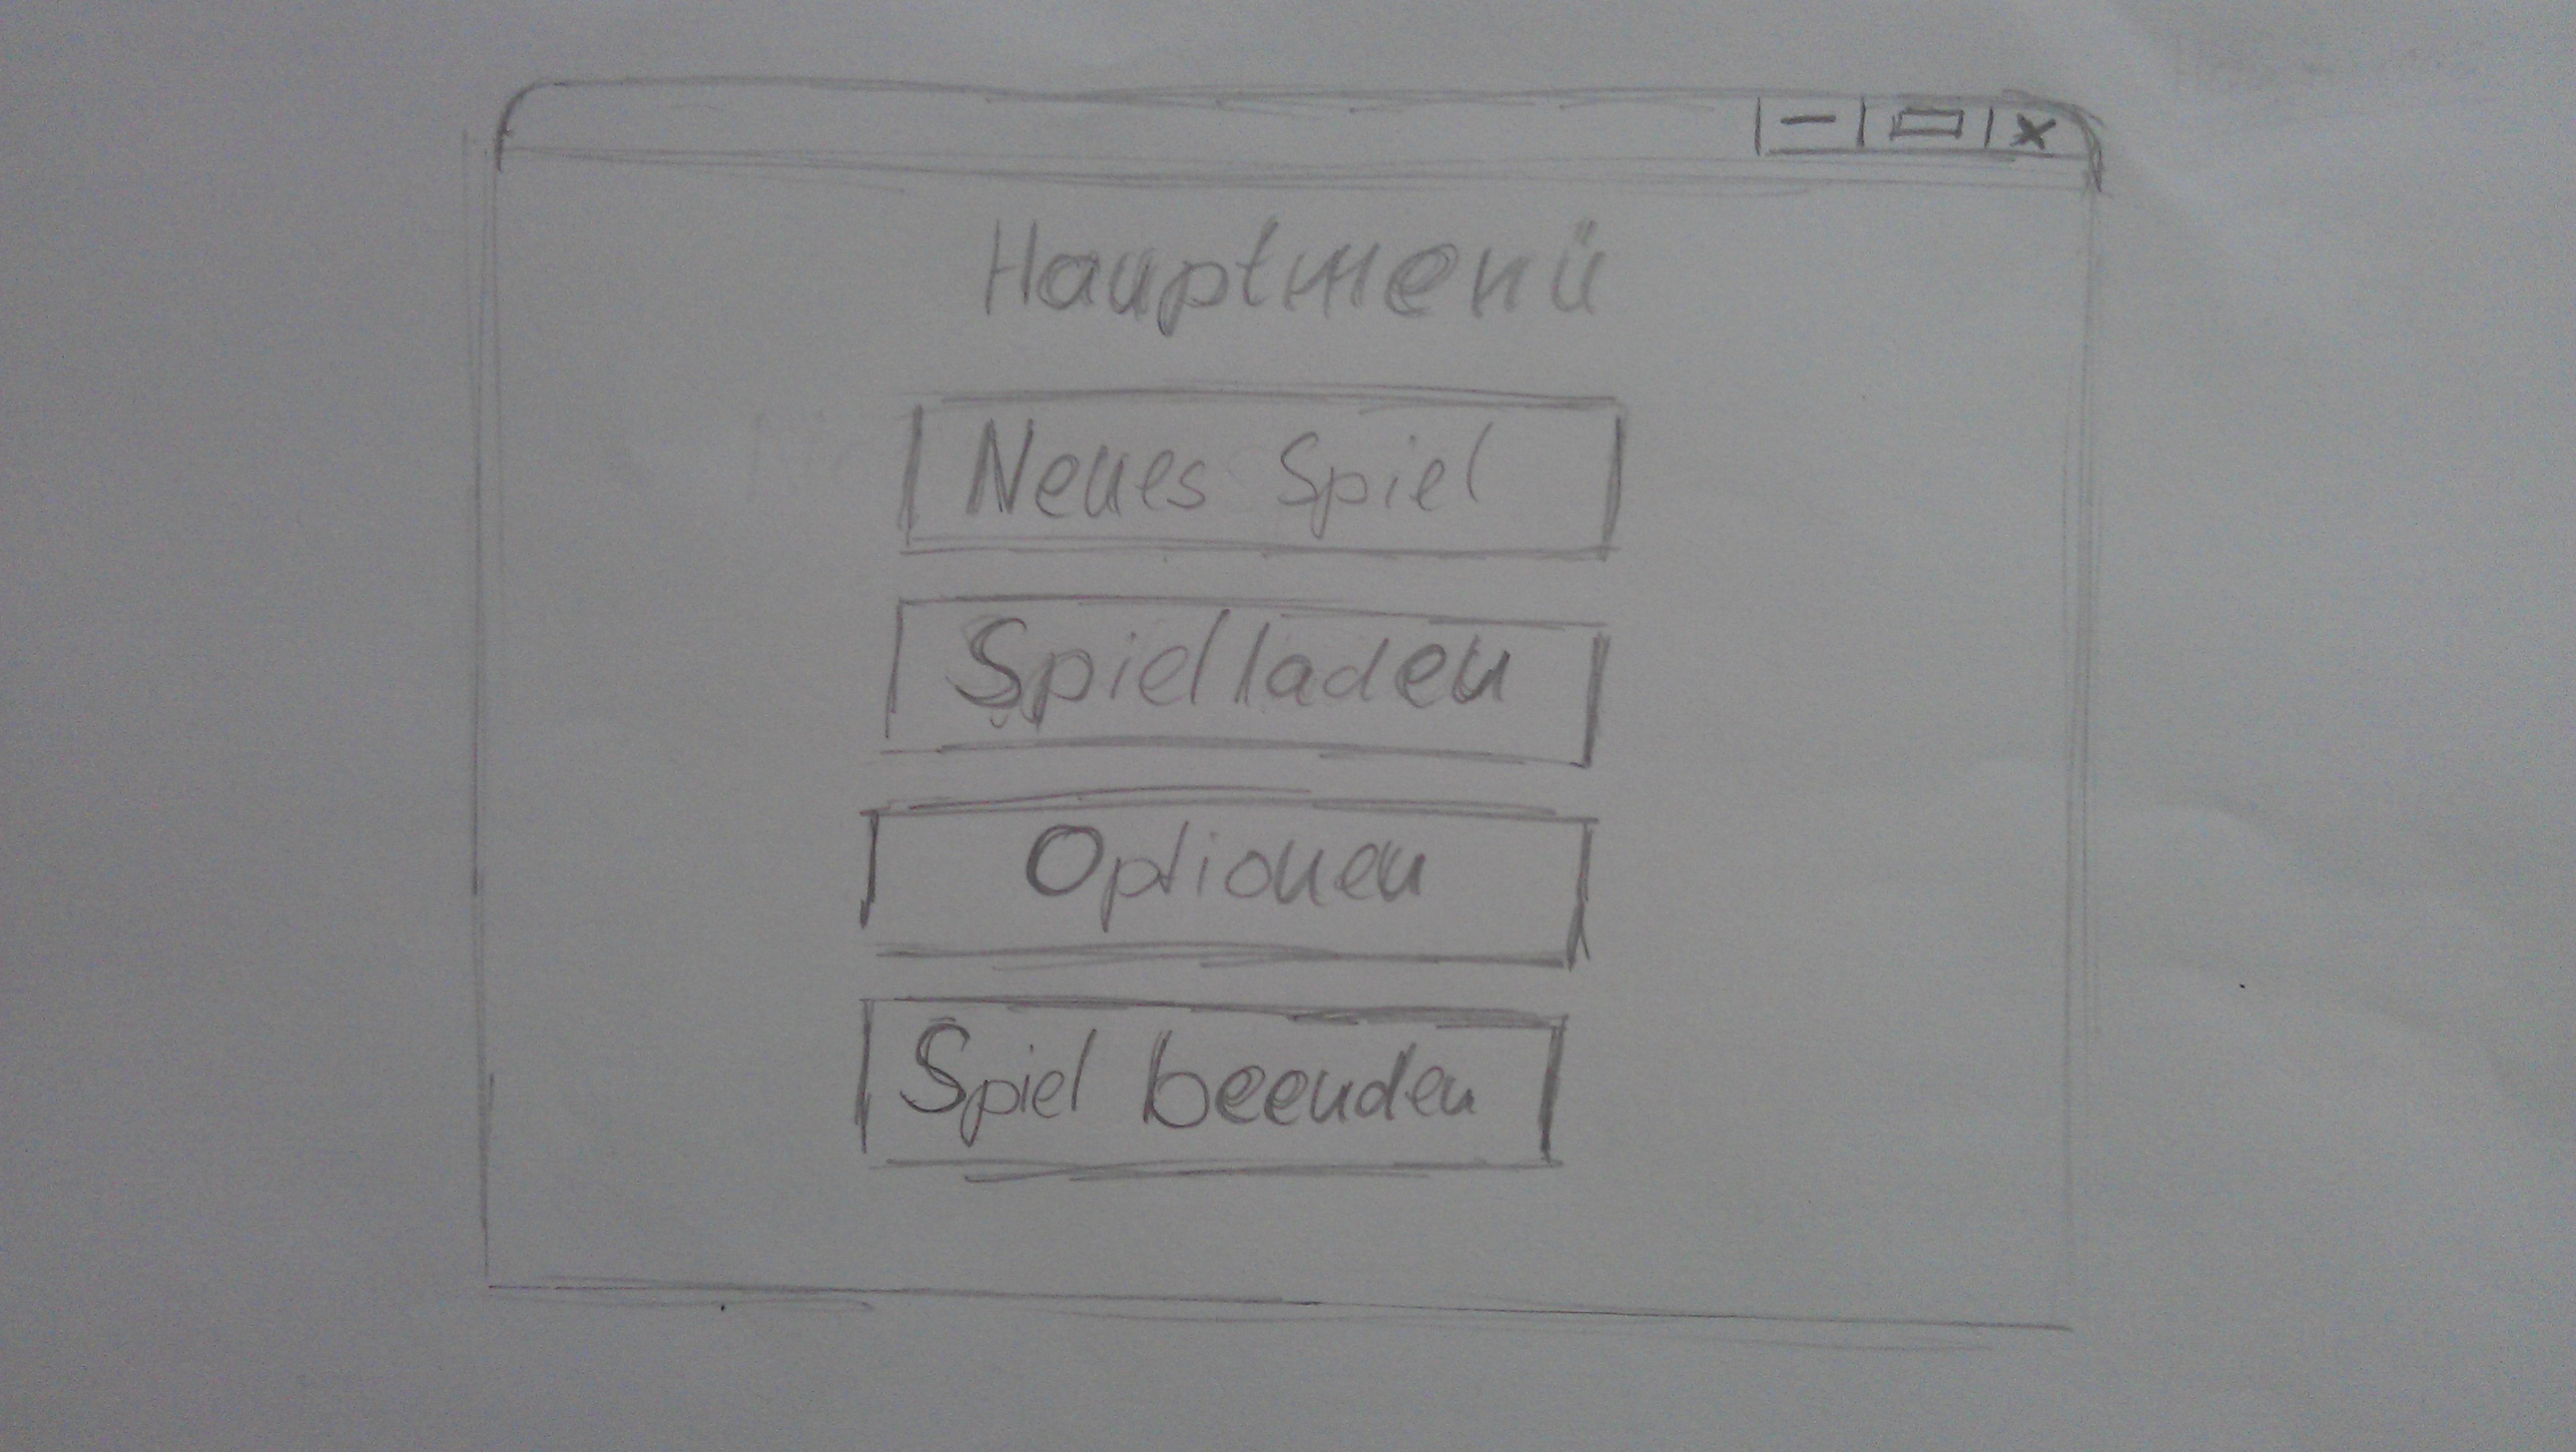 Hauptmenü
Neues Spiel
Spiel laden
Optionen
Spiel beenden